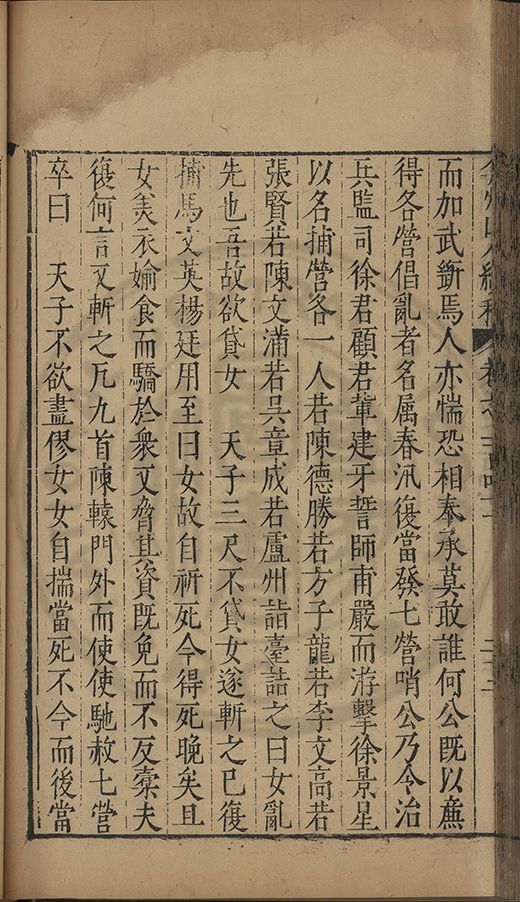 而加武斷焉人亦惴恐相奉承莫敢誰何公既以亷
得各營倡亂者名属春汛復當發七營哨公乃令治
兵監司徐君顧君軰建牙誓師甫嚴而游擊徐景星
以名捕營各一人若陳德勝若方子龍若李文高若
張賢若陳文滿若吳章成若盧州詣臺詰之曰女亂
先也吾故欲貸女　天子三尺不貸女遂斬之已復
捕馬文英楊廷用至曰女故自祈死今得死晚矣且
女美衣媮食而驕於衆又脅其資既免而不反橐夫
復何言又斬之凡九首陳轅門外而使使馳赦七營
卒曰　天子不欲盡僇女女自揣當死不今而後當